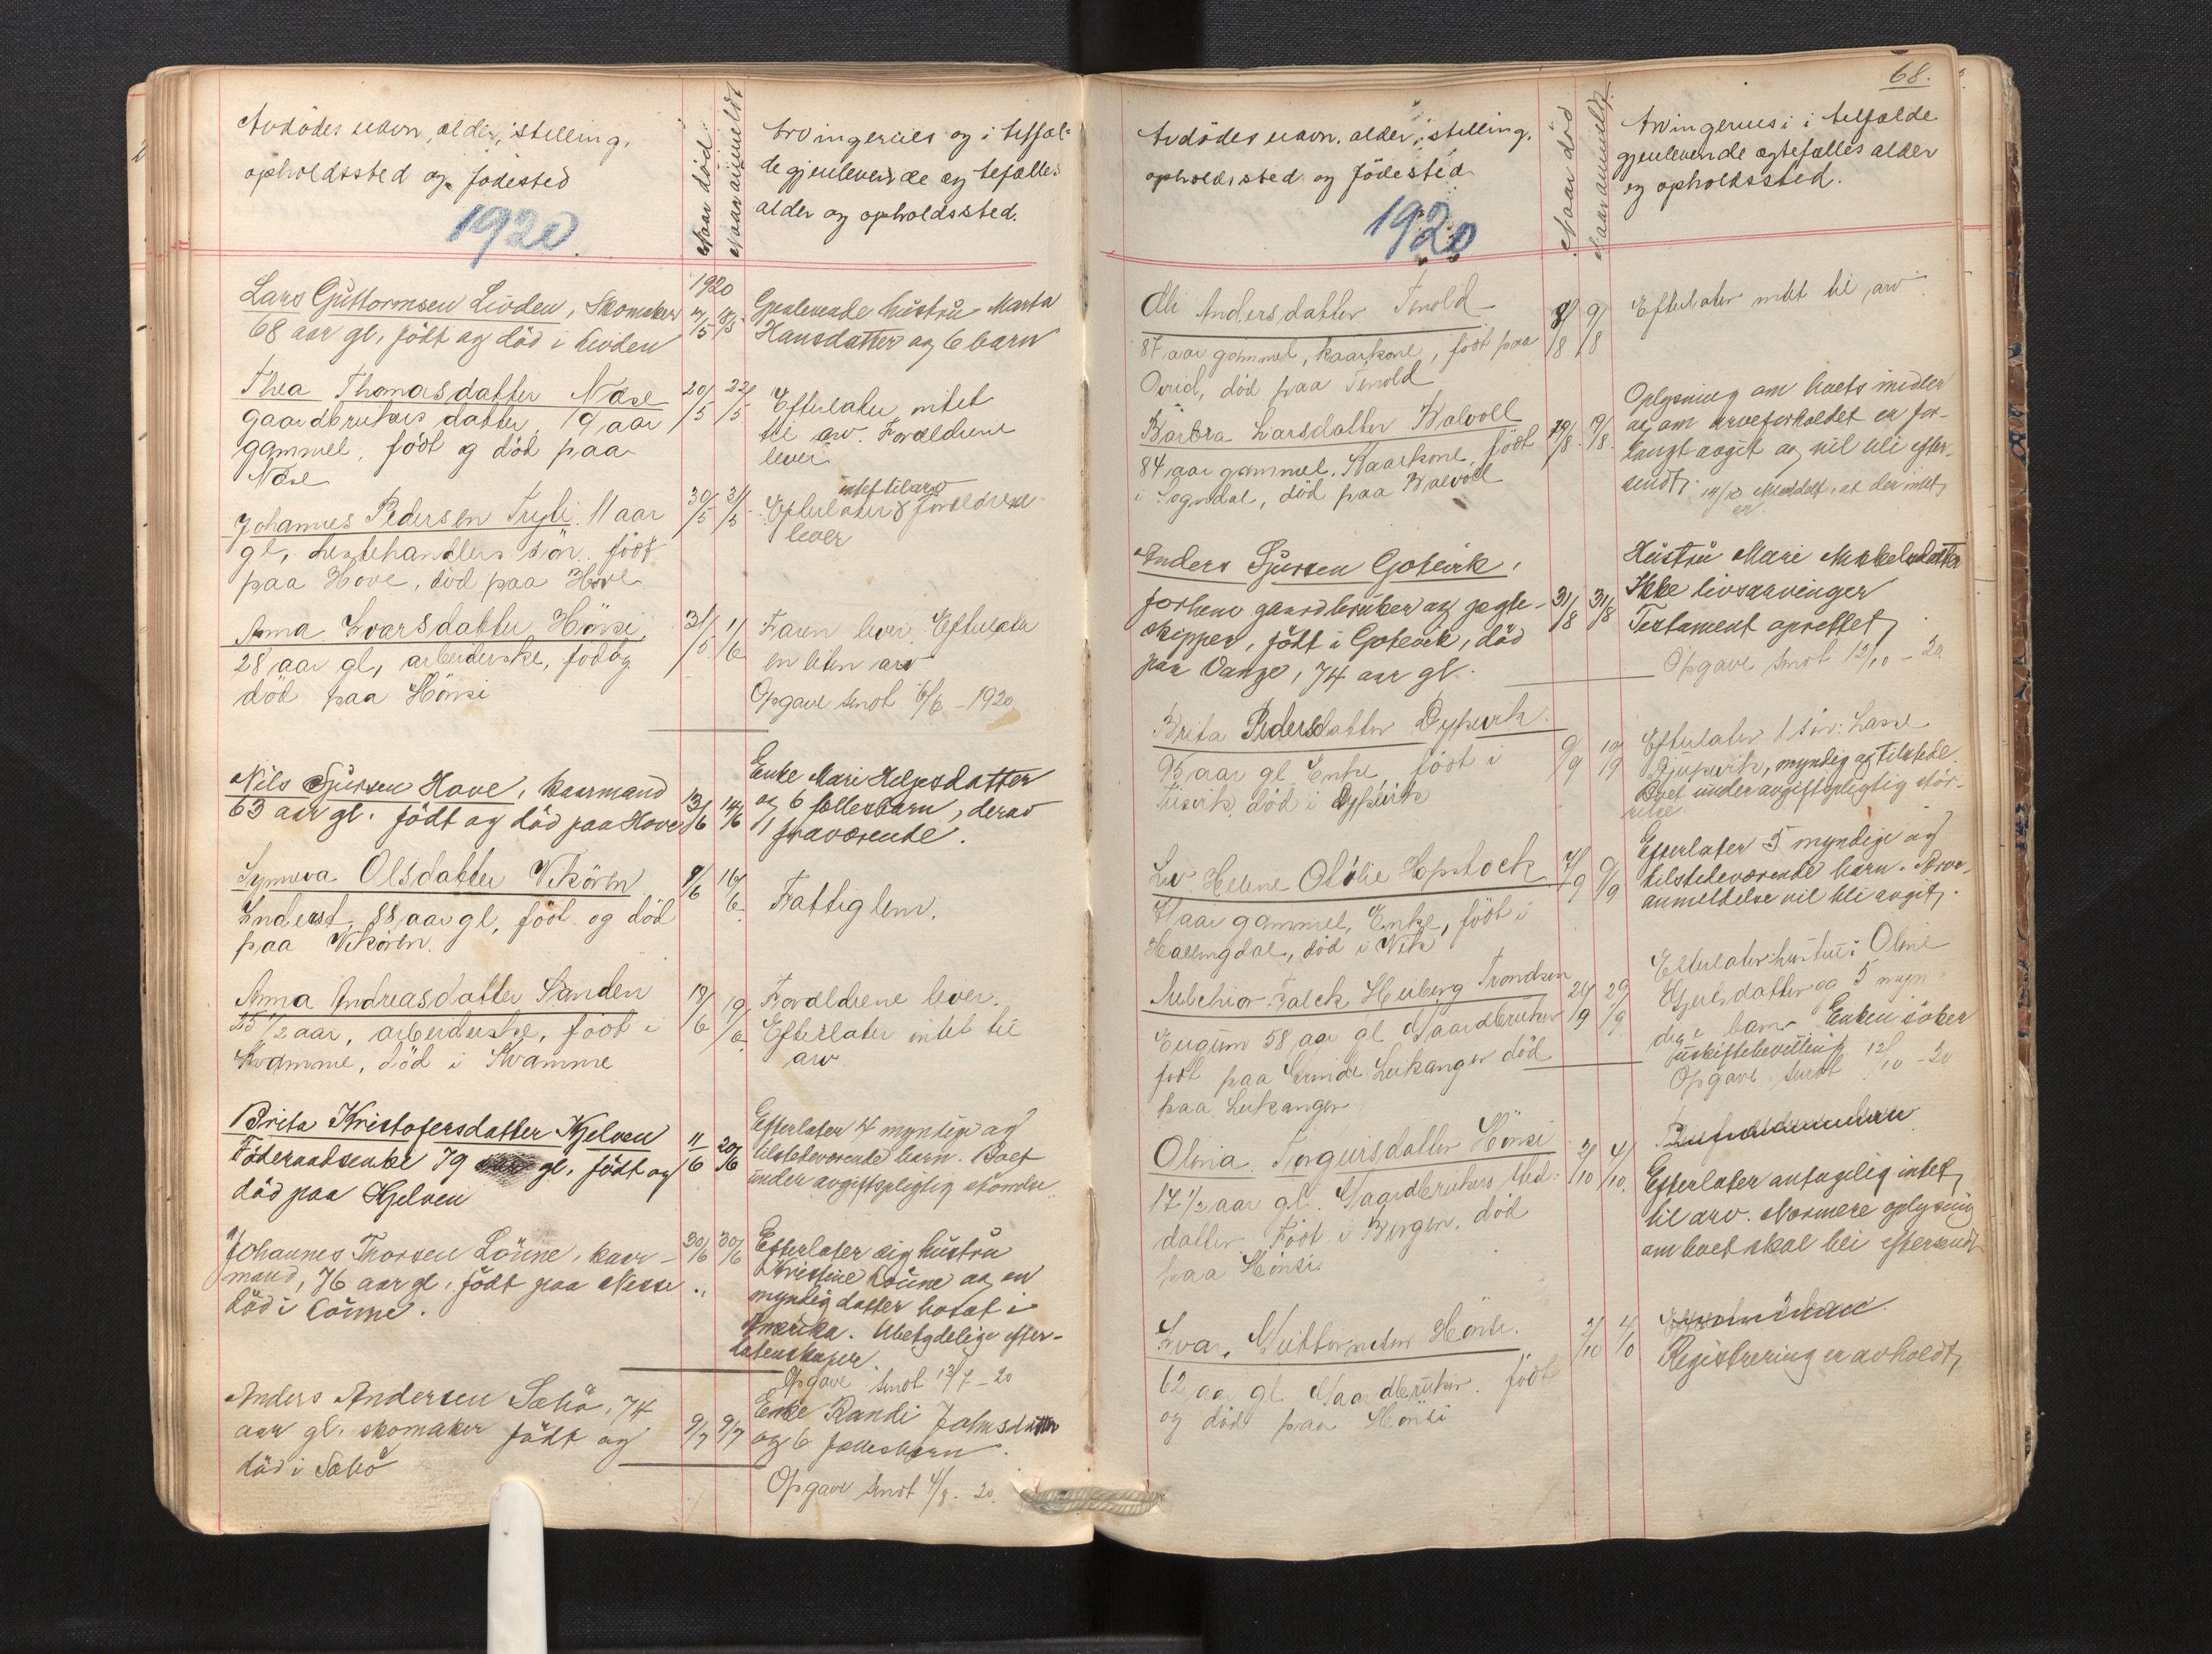 Avdödes navn, alder, stilling,
opholdssted og födested
1920.
Naar död
Naar anmeldt
Arvingernes og i tilfæl-
de gjenlevende ægtefælles
alder og opholdssted.
1920
Lars Guttormsen Livden, Skomaker
68 aar gl, födt og död i Livden
17/5 18/5
Gjenlevende hustru Marta
Hansdatter og 6 barn
Thea Thomasdatter Nese
gaardbrukers datter, 19 aar
gammel, födt og död paa
Nese
20/5 22/5
Efterlater intet
til arv. Forældrene
lever
Johannes Pedersen Tryti 11 aar
gl, hestehandlers sön födt
paa Hove, död paa Hove
30/5 31/5
intet til arv
Efterlater Forældrene
lever
Anna Ivarsdatter Hönsi,
28 aar gl, arbeiderske, född og
död paa Hönsi
31/5 1/6
Faren lever. Efterlater
en liten arv
Opgave sendt 16/6 - 1920
Nils Sjursen Hove, kaarmand
63 aar gl. födt og död paa Hove
13/6 14/6
Enke Mari Helgesdatter
og 6 fellesbarn, derav
1 fraværende.
Synneva Olsdatter Vikören
Inderst, 88 aar gl, födt og död
paa Vikören.
9/6 16/6
Fattiglem.
Anna Andreasdatter Sanden
25 1/2 aar, arbeiderske, födt i
Kvamme, död i Kvamme
19/6 19/6
Forældrene lever.
Efterlater intet til
arv
Brita Kristofersdatter Hjelven
Föderaadsenke 79 gl. födt og
död paa Hjelven
11/6 20/6
Efterlater 4 myndige og
tilstedeværende barn. Boet
under avgiftspligtig störrelse
Johannes Thorsen Lönne, kaar-
mand, 76 aar gl. födt paa Nesse
död i Lönne.
30/6 30/6
Efterlater sig hustru
Kristine Lönne og en
myndig datter bosat i
Amerika. Ubetydelige efter-
latenskaper.
Opgave sendt 13/7 - 20
Anders Andersen Sæbö, 74
aar gl. skomaker födt og
död i Sæbö
9/7 9/7
Enke Randi Johnsdatter
og 6 fellesbarn.
Opgave sendt 4/8 - 20.
68.
Avdödes navn, alder, stilling,
opholdssted og födested
1920
Naar död
Naar anmeldt
Arvingernes i tilfælde
gjenlevende ægtefælles alder
og opholdssted.
Andersdatter Tenold
87 aar gammel, kaarkone, födt paa
död paa Tenold
8/8 9/8
Efterlater intet til arv.
Barbra Larsdatter Valvoll
84 aar gammel, Kaarkone, födt
i Sogndal, död paa Valvoll
9/8
Oplysning om boets midler
og om arveforholdet er for-
langt avgit og vil bli efter-
sendt.
14/10 Meddelt, at der intet
er
Anders Sjursen Gotevik,
forhenv gaardbruker og jagte-
skipper, födt i Gotevik, död
paa Vange, 74 aar gl.
31/8 31/8
Hustru Mari Mikkelsdatter
Ikke livsarvinger
Testament oprettet,
Opgave sendt 12/10 - 20
Brita Pedersdatter Dypevik
aar gl Enke, födt i
död i Dypevik
9/9
Efterlater 1 sön: Lasse
Djupevik, myndig og tilstede.
Boet under avgiftspligtig stör-
relse
Liv Helene Otilie Hopstock
aar gammel, Enke, födt i
Hallingdal, död i Vik
7/9 9/9
Efterlater 5 myndige og
tilstedeværende barn. Arve-
anmeldelse vil bli avgit.
Melchior Falck Heiberg Trondsen
Eugum 58 aar gl Gaardbruker
födt paa Grinde Leikanger död
paa Leikanger
24/9 29/9
Efterlater hustru: Oline
og 5 myn-
dige barn. Enken söker
uskiftebevilling
Opgave sendt 12/10 - 20
Olina Torgeirsdatter Hönsi
17 1/2 aar gl. Gaardbrukers sted-
datter. Födt i Bergen, död
paa Hönsi
2/10 4/10
Efterlater antagelig intet
til arv. Nærmere oplysning
om boet skal bli eftersendt
Ivar Guttormsen Hönsi.
62 aar gl Gaardbruker. födt
og död paa Hönsi
2/10 4/10
Registrering er avholdt,